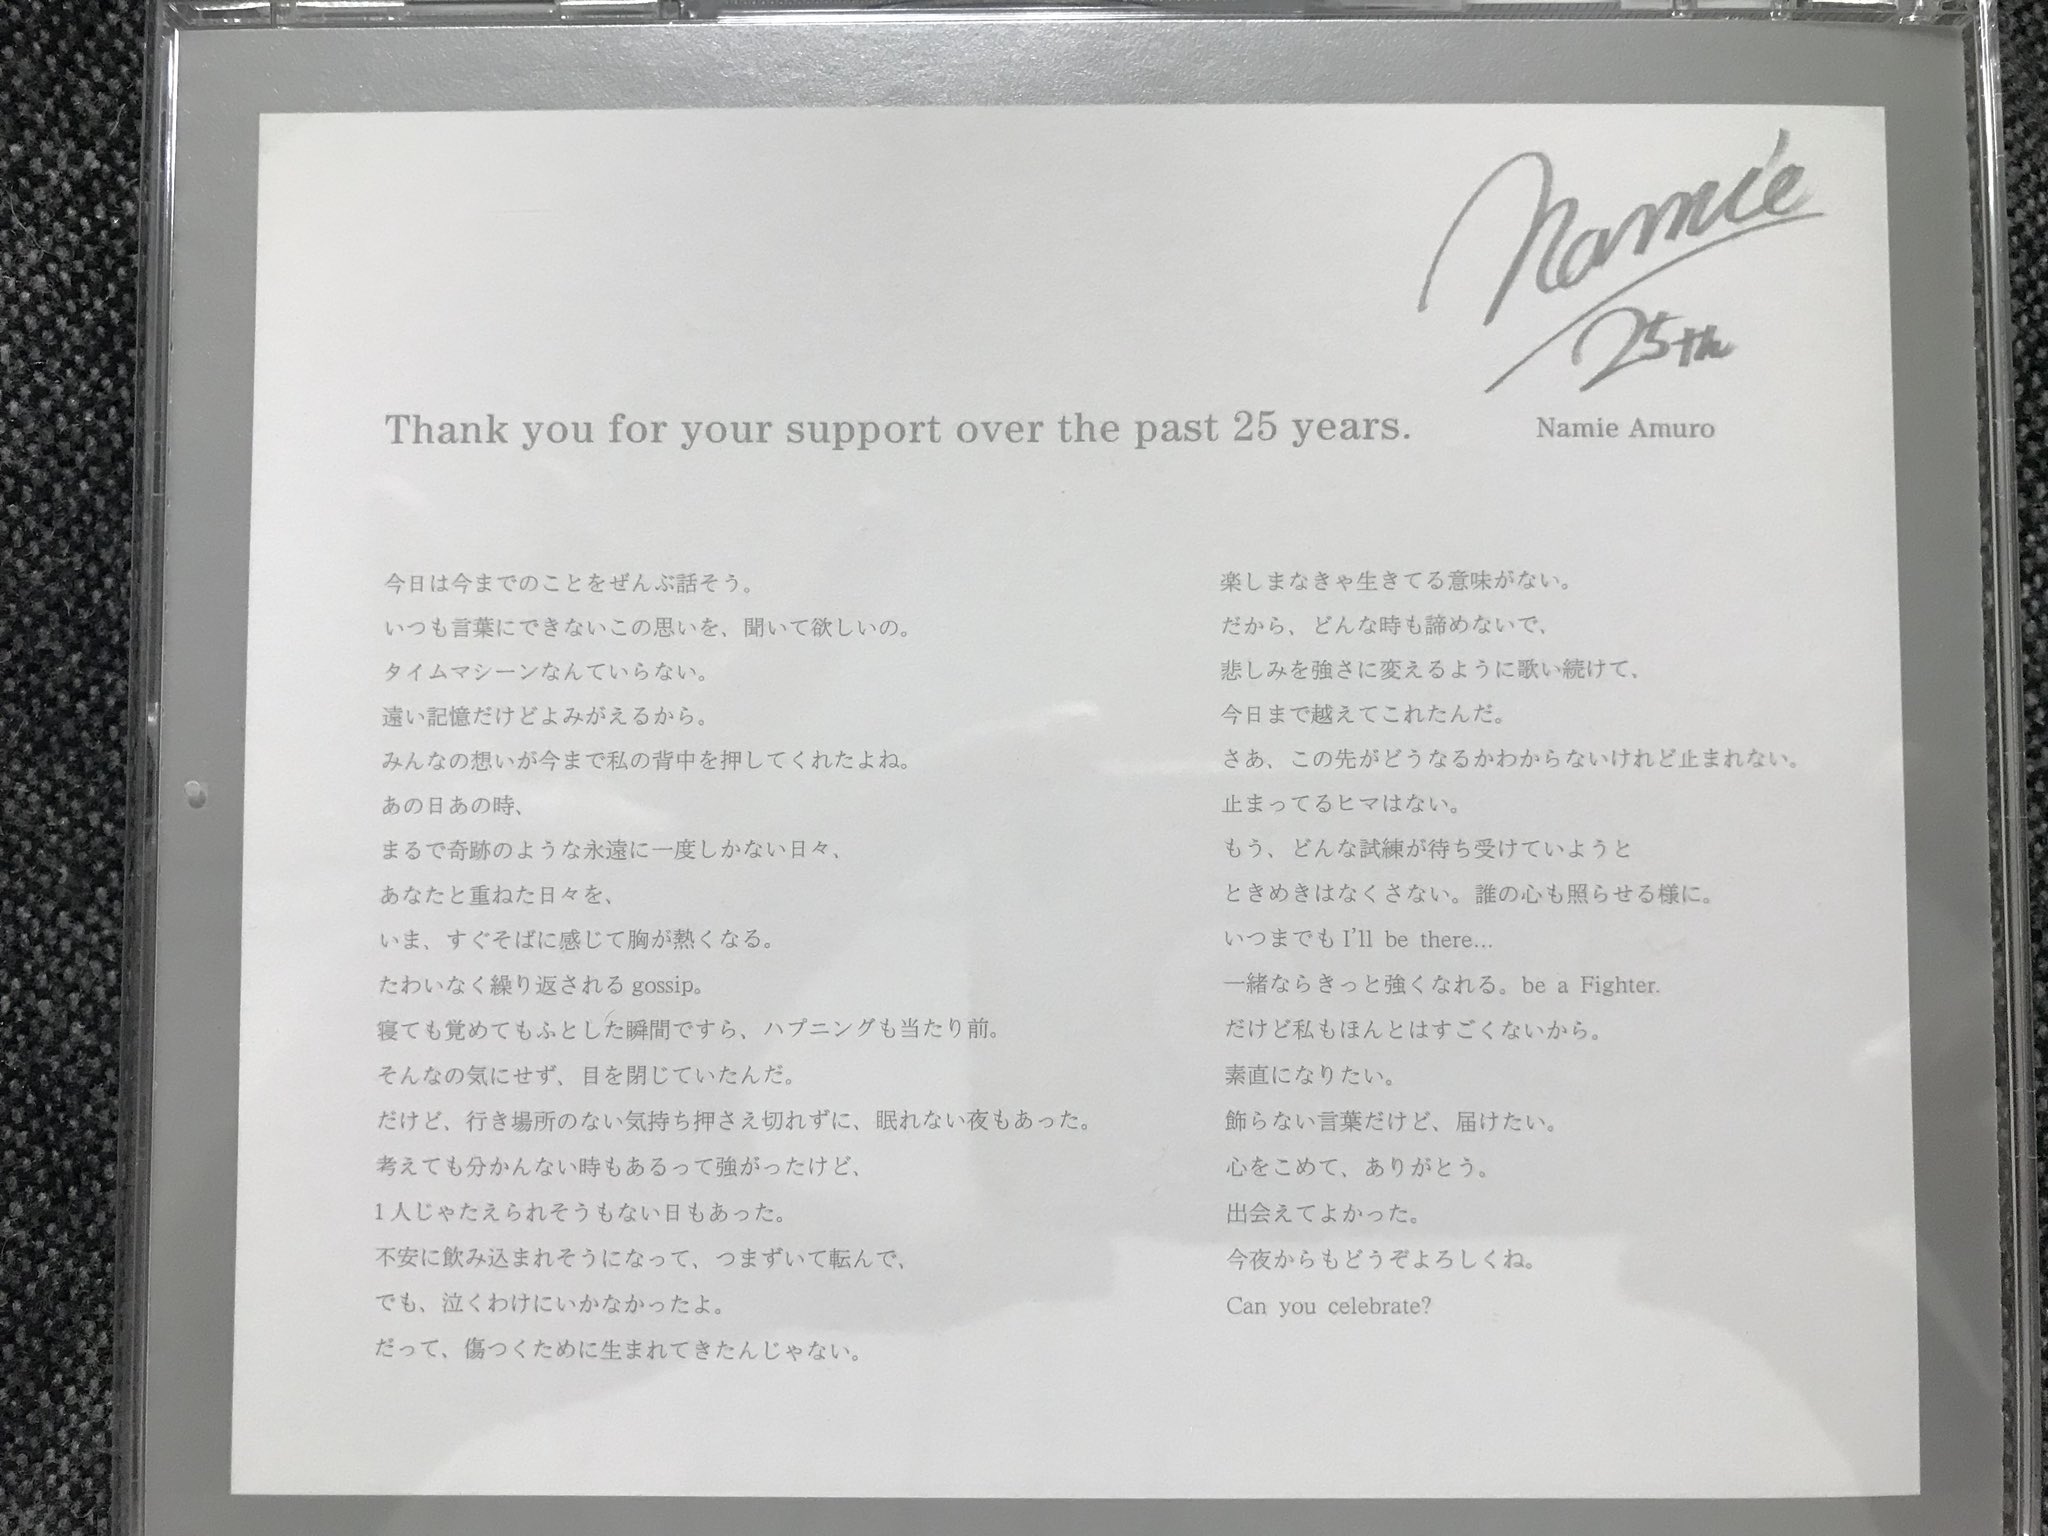 Namie
25th
Thank you for your support over the past 25 years.
Namie Amuro
今日は今までのことをぜんぶ話そう。
いつも言葉にできないこの思いを、聞いて欲しいの。
タイムマシーンなんていらない。
遠い記憶だけどよみがえるから。
みんなの想いが今まで私の背中を押してくれたよね。
あの日あの時、
まるで奇跡のような永遠に一度しかない日々、
あなたと重ねた日々を、
いま、すぐそばに感じて胸が熱くなる。
たわいなく繰り返される gossip。
寝ても覚めてもふとした瞬間ですら、ハプニングも当たり前。
そんなの気にせず、目を閉じていたんだ。
だけど、行き場所のない気持ち押さえ切れずに、眠れない夜もあった。
考えても分かんない時もあるって強がったけど、
1人じゃたえられそうもない日もあった。
不安に飲み込まれそうになって、つまずいて転んで、
でも、泣くわけにいかなかったよ。
だって、傷つくために生まれてきたんじゃない。
楽しまなきゃ生きてる意味がない。
だから、どんな時も諦めないで、
悲しみを強さに変えるように歌い続けて、
今日まで越えてこれたんだ。
さあ、この先がどうなるかわからないけれど止まれない。
止まってるヒマはない。
もう、どんな試練が待ち受けていようと
ときめきはなくさない。誰の心も照らせる様に。
いつまでも I'll be there...
一緒ならきっと強くなれる。be a Fighter.
だけど私もほんとはすごくないから。
素直になりたい。
飾らない言葉だけど、届けたい。
心をこめて、ありがとう。
出会えてよかった。
今夜からもどうぞよろしくね。
Can you celebrate?